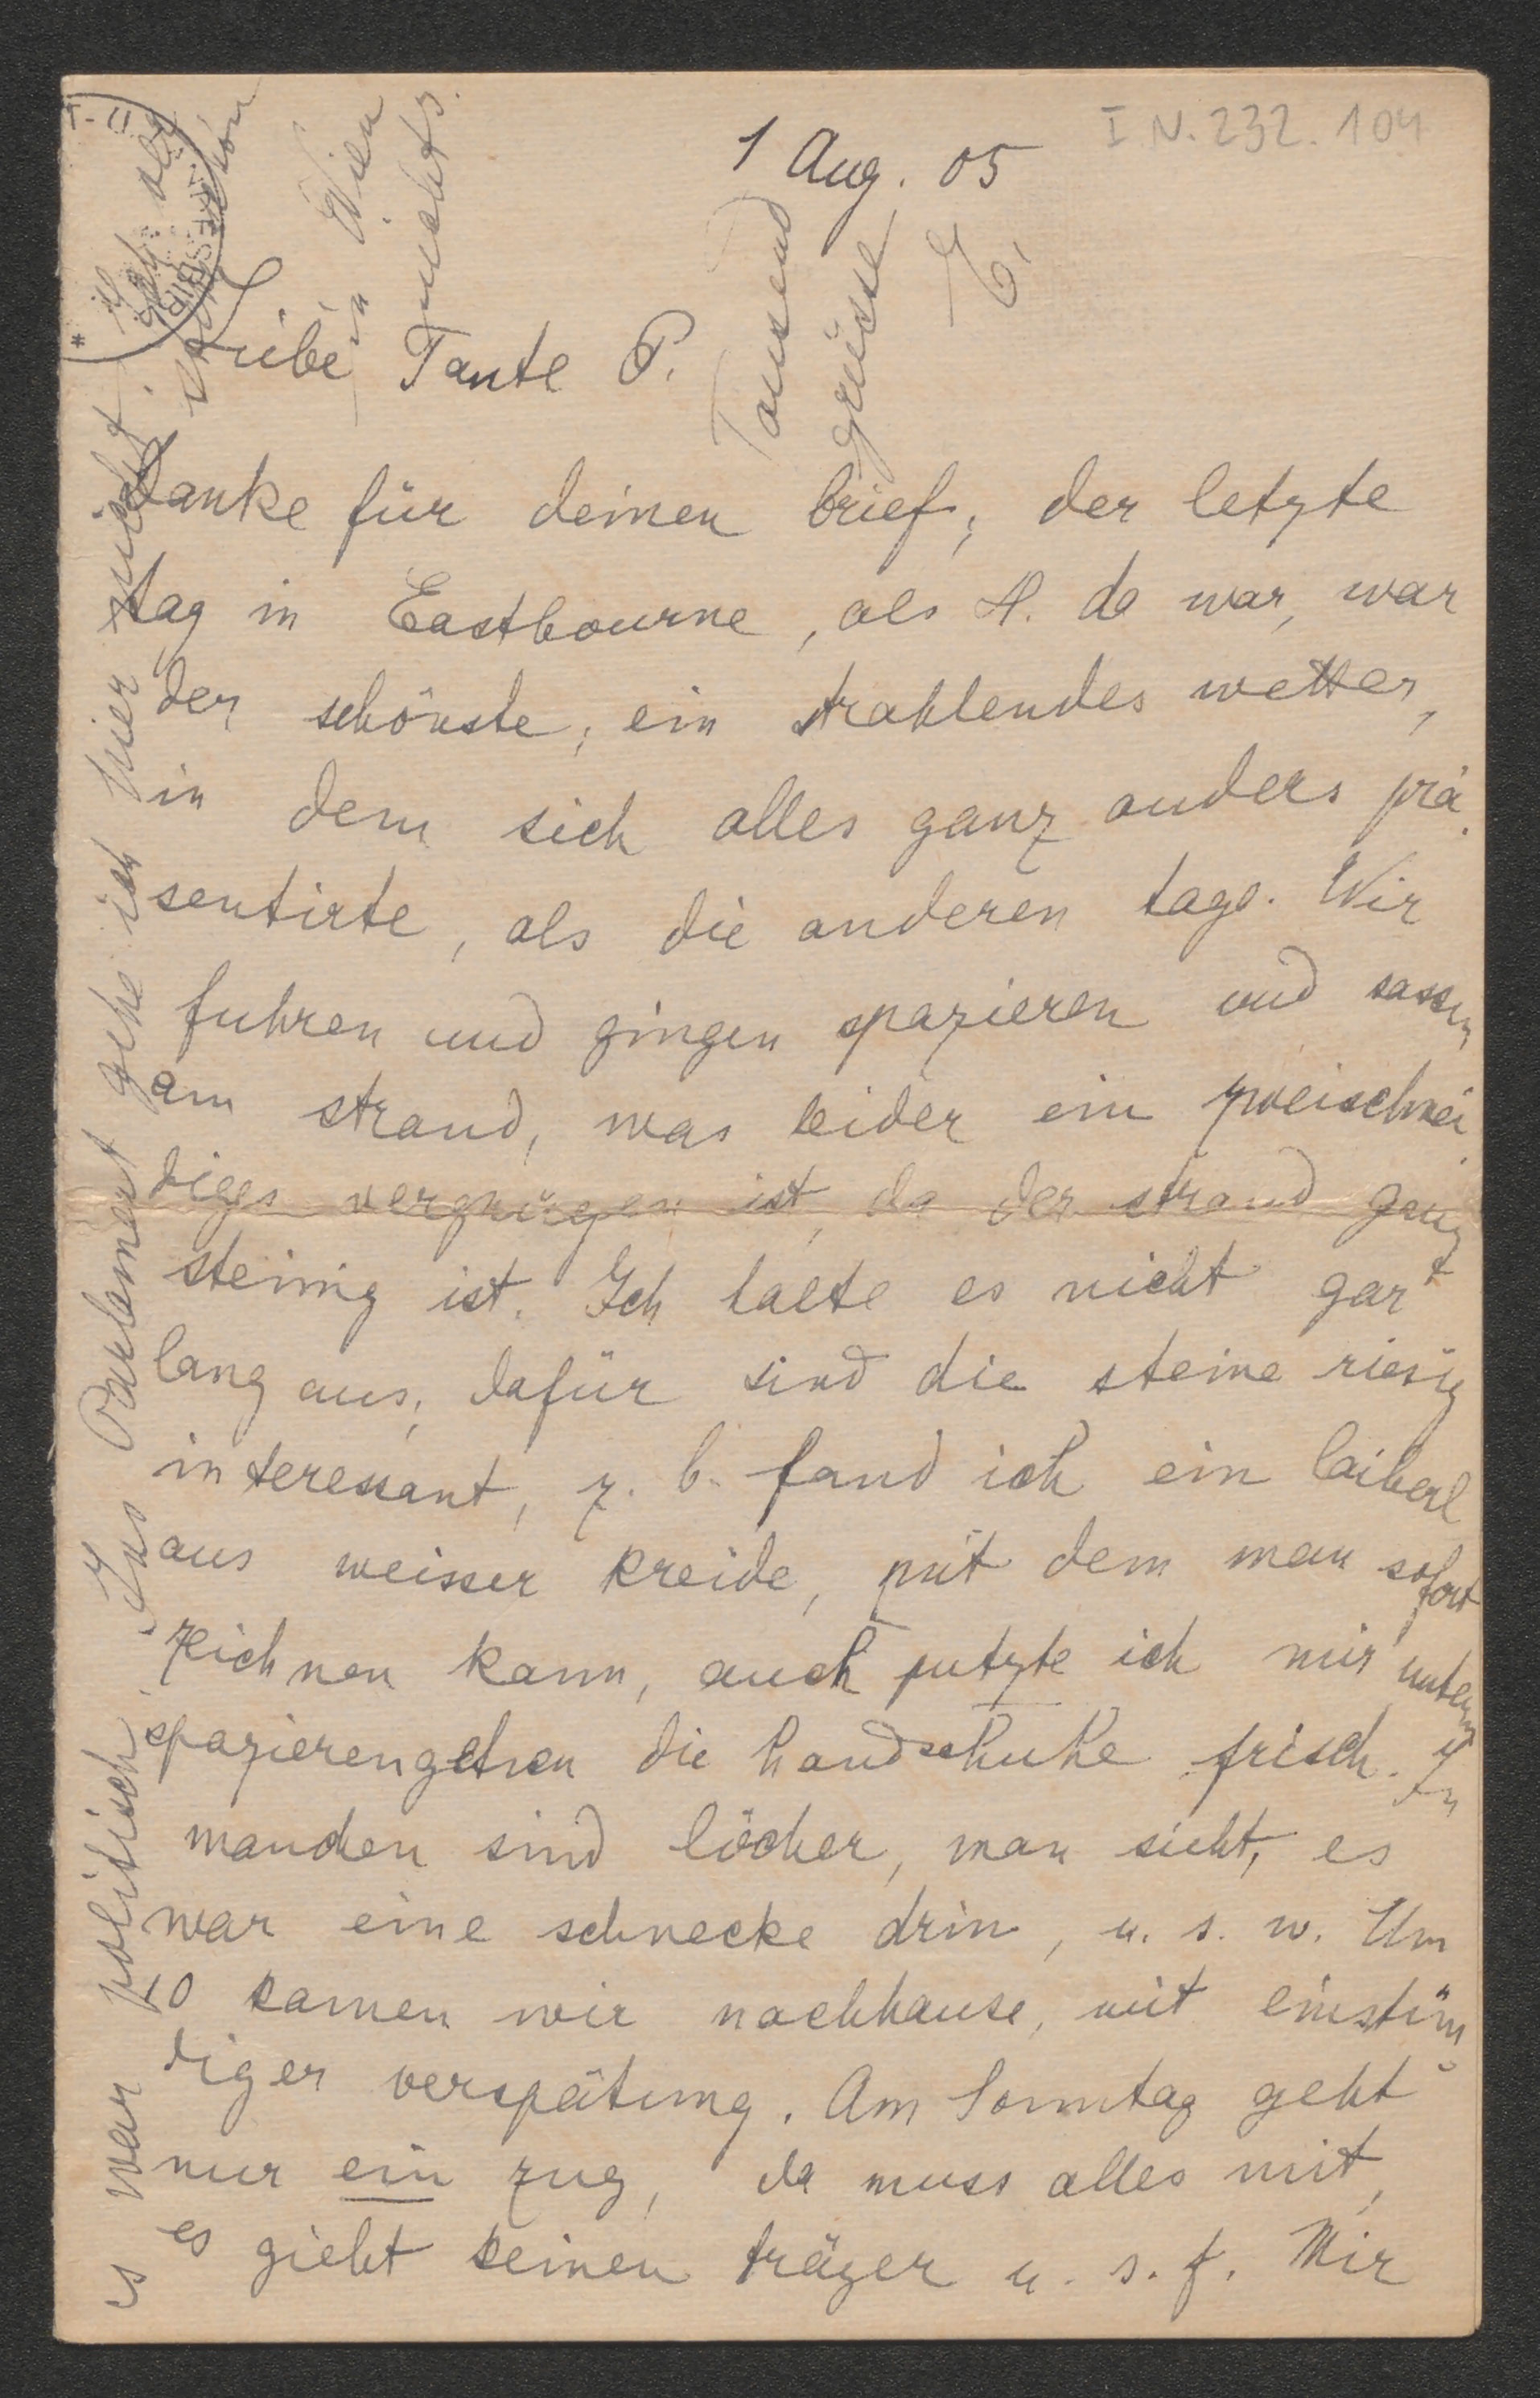 I.N. 232.104
1 Aug. 05
Liebe Tante P.
Danke für deinen brief; der letzte
tag in Eastbourne, als H. da war, war
der schönste; ein strahlendes wetter,
in dem sich alles ganz anders prä
sentirte, als die anderen tage. Wir
fuhren und gingen spazieren und sassen
am strand, was leider ein zweischnei
diges vergnügen ist, da der strand ganz
steinig ist. Ich halte es nicht gar
lang aus; dafür sind die steine riesig
interessant, z. b. fand ich ein laiberl
aus weisser kreide, mit dem man sofort
zeichnen kann, auch putzte ich mir unterm
spazierengehen die handschuhe frisch. In
manchen sind löcher, man sieht, es
war eine schnecke drin, u. s. w. Um
10 kamen wir nachhause, mit einstün
diger verspätung. Am Sonntag geht
nur ein zug, da muss alles mit,
es giebt keinen träger u. s. f. Mir
es war politisch. Ins Parlament gehe ich hier nicht.
Ich
schon
in Wien
nichts.
Tausend
grüsse
E.